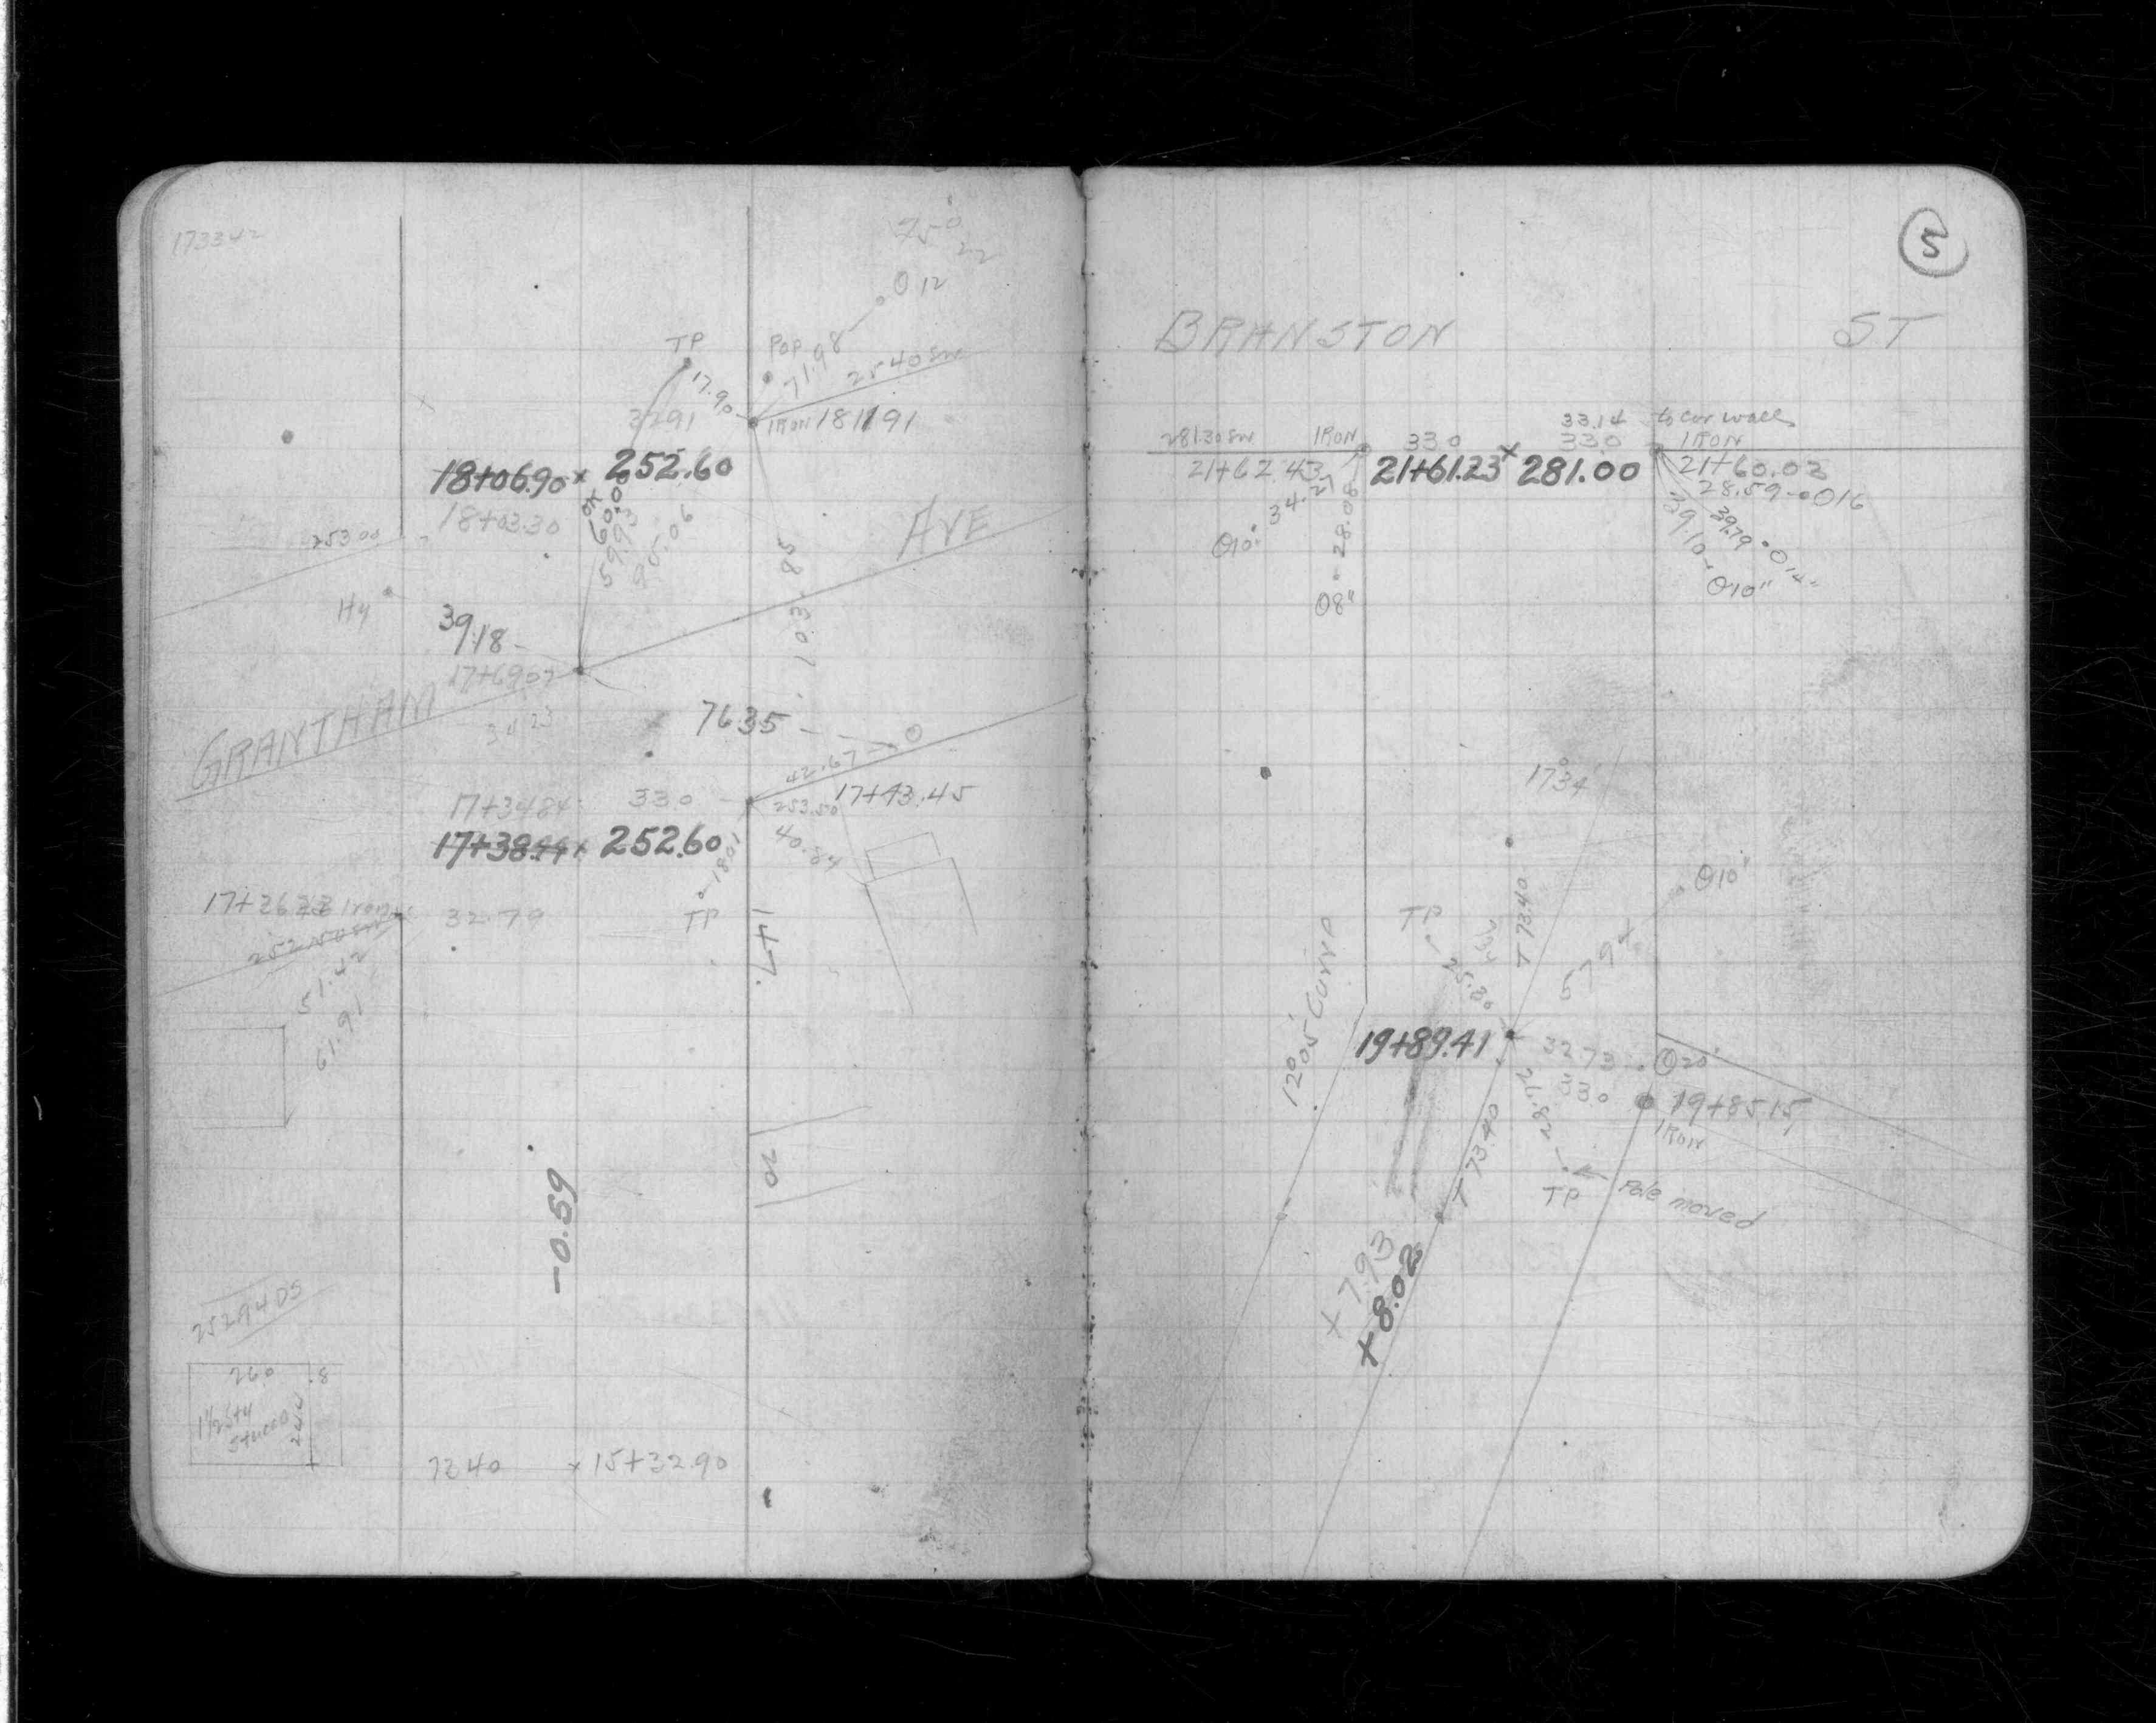 173342
75° 22
O 12
TP
POP
71.98
2540 SW
17.90
3291
IRON 18+11.91
18+06.90 x 252.60
18+03.30
OK
60.00
59.93
95.06
AVE
25300
Hy
103.85
39.18
17+6907
GRANTHAM
3423
7635
O
42.67
17+3484
330
253.50
17+43.45
17+38.44 x 252.60
40.84
1801
TP
3279
51.42
61.91
147.
20
-0.59
2529405
260
.8
1½ Sty
Stucco
244
7340 x 15+32.90
5
BRANSTON ST
33.14 to cor wall
28130 SW IRON 330 330 IRON
21+62.43 21+61.23 x 281.00 21+60.02
34.27
28.08
28.59 O16
39.79 O14"
39.10 O10"
O10"
O8"
17°34'
O10"
TP
T 73.40
25.80
5794
12°05' Curve
19+89.41
3273
O20"
330
28.72
19+85.15
IRON
T 73.40
TP
Pole moved
+7.93
+8.02